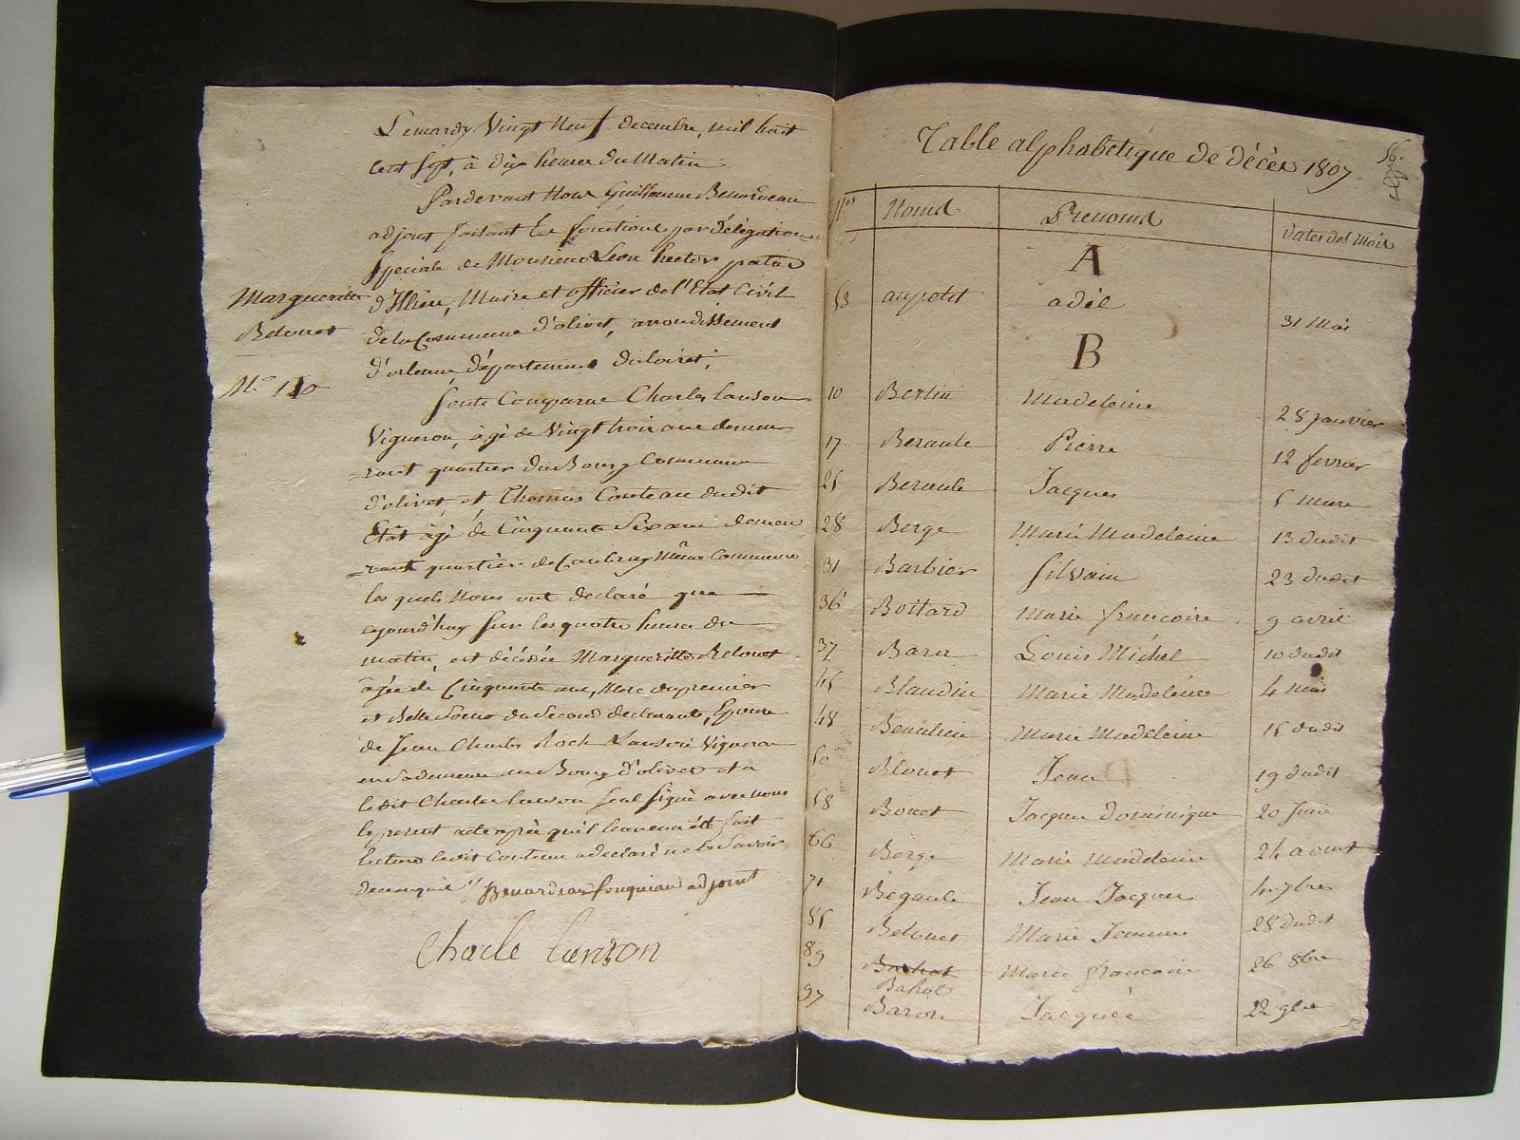 Le mardy Vingt Neuf decembre, mil huit
cent sept, à dix heures du Matin
Pardevant Nous Guillaume Benardeau
adjoint faisant les fonctions par délégation
Speciale de Monsieur Leon hector patas
d'Illiers, Maire et officier de l'Etat Civil
de la Commune d'olivet, arrondissement
d'orleans, département du loiret,
Margueritte
Belouet
N.o 110
Sont Comparus Charles lanson
Vigneron, âgé de Vingt trois ans demeu
rant quartier du Bourg Commune
d'olivet, et Thomas Couteau dudit
Etat âgé de Cinquante Six ans demeu
rant quartier de Même Commune
les quels Nous ont declaré que
cejourd'huy sur les quatre heures du
matin, est décédée Margueritte Belouet
âgée de Cinquante ans, Mere du premier
et Belle Soeur du Second declarants, Epouse
de Jean Charles Roch Lanson Vigneron
en Sa demeure au Bourg d'olivet et a
le dit Charles lanson Seul Signé avec nous
le present acte après qu'il leur en a été fait
lecture ledit Couteau a declaré ne le Savoir
de ce enquis Benardeau adjoint
Charle lanson
Table alphabétique de décès 1807
56.
Nos Noms Prenoms dates des Mois
A
53 aupetit adél 31 Mai
B
10 Bertin Madeleine 28 janvier
17 Berault Pierre 12 fevrier
25 Berault Jacques 5 mars
28 Berge Marie Madeleine 13 dudit
31 Barbier Silvain 23 dudit
36 Boitard Marie francoise 9 avril
37 Baru Louis Michel 10 dudit
45 Blandin Marie Madeleine 4 mai
48 Beaulieu Marie Madeleine 15 dudit
50 Blouet Jean 19 dudit
58 Bouet Jacques Dominique 20 Juin
66 Berge Marie Madeleine 24 aoust
71 Begault Jean Jacques 4 7bre
85 Belouet Marie Jeanne 28 dudit
89 Bachot Marie francoise 26 8bre
Bahot
97 Baron Jacques 22 9bre